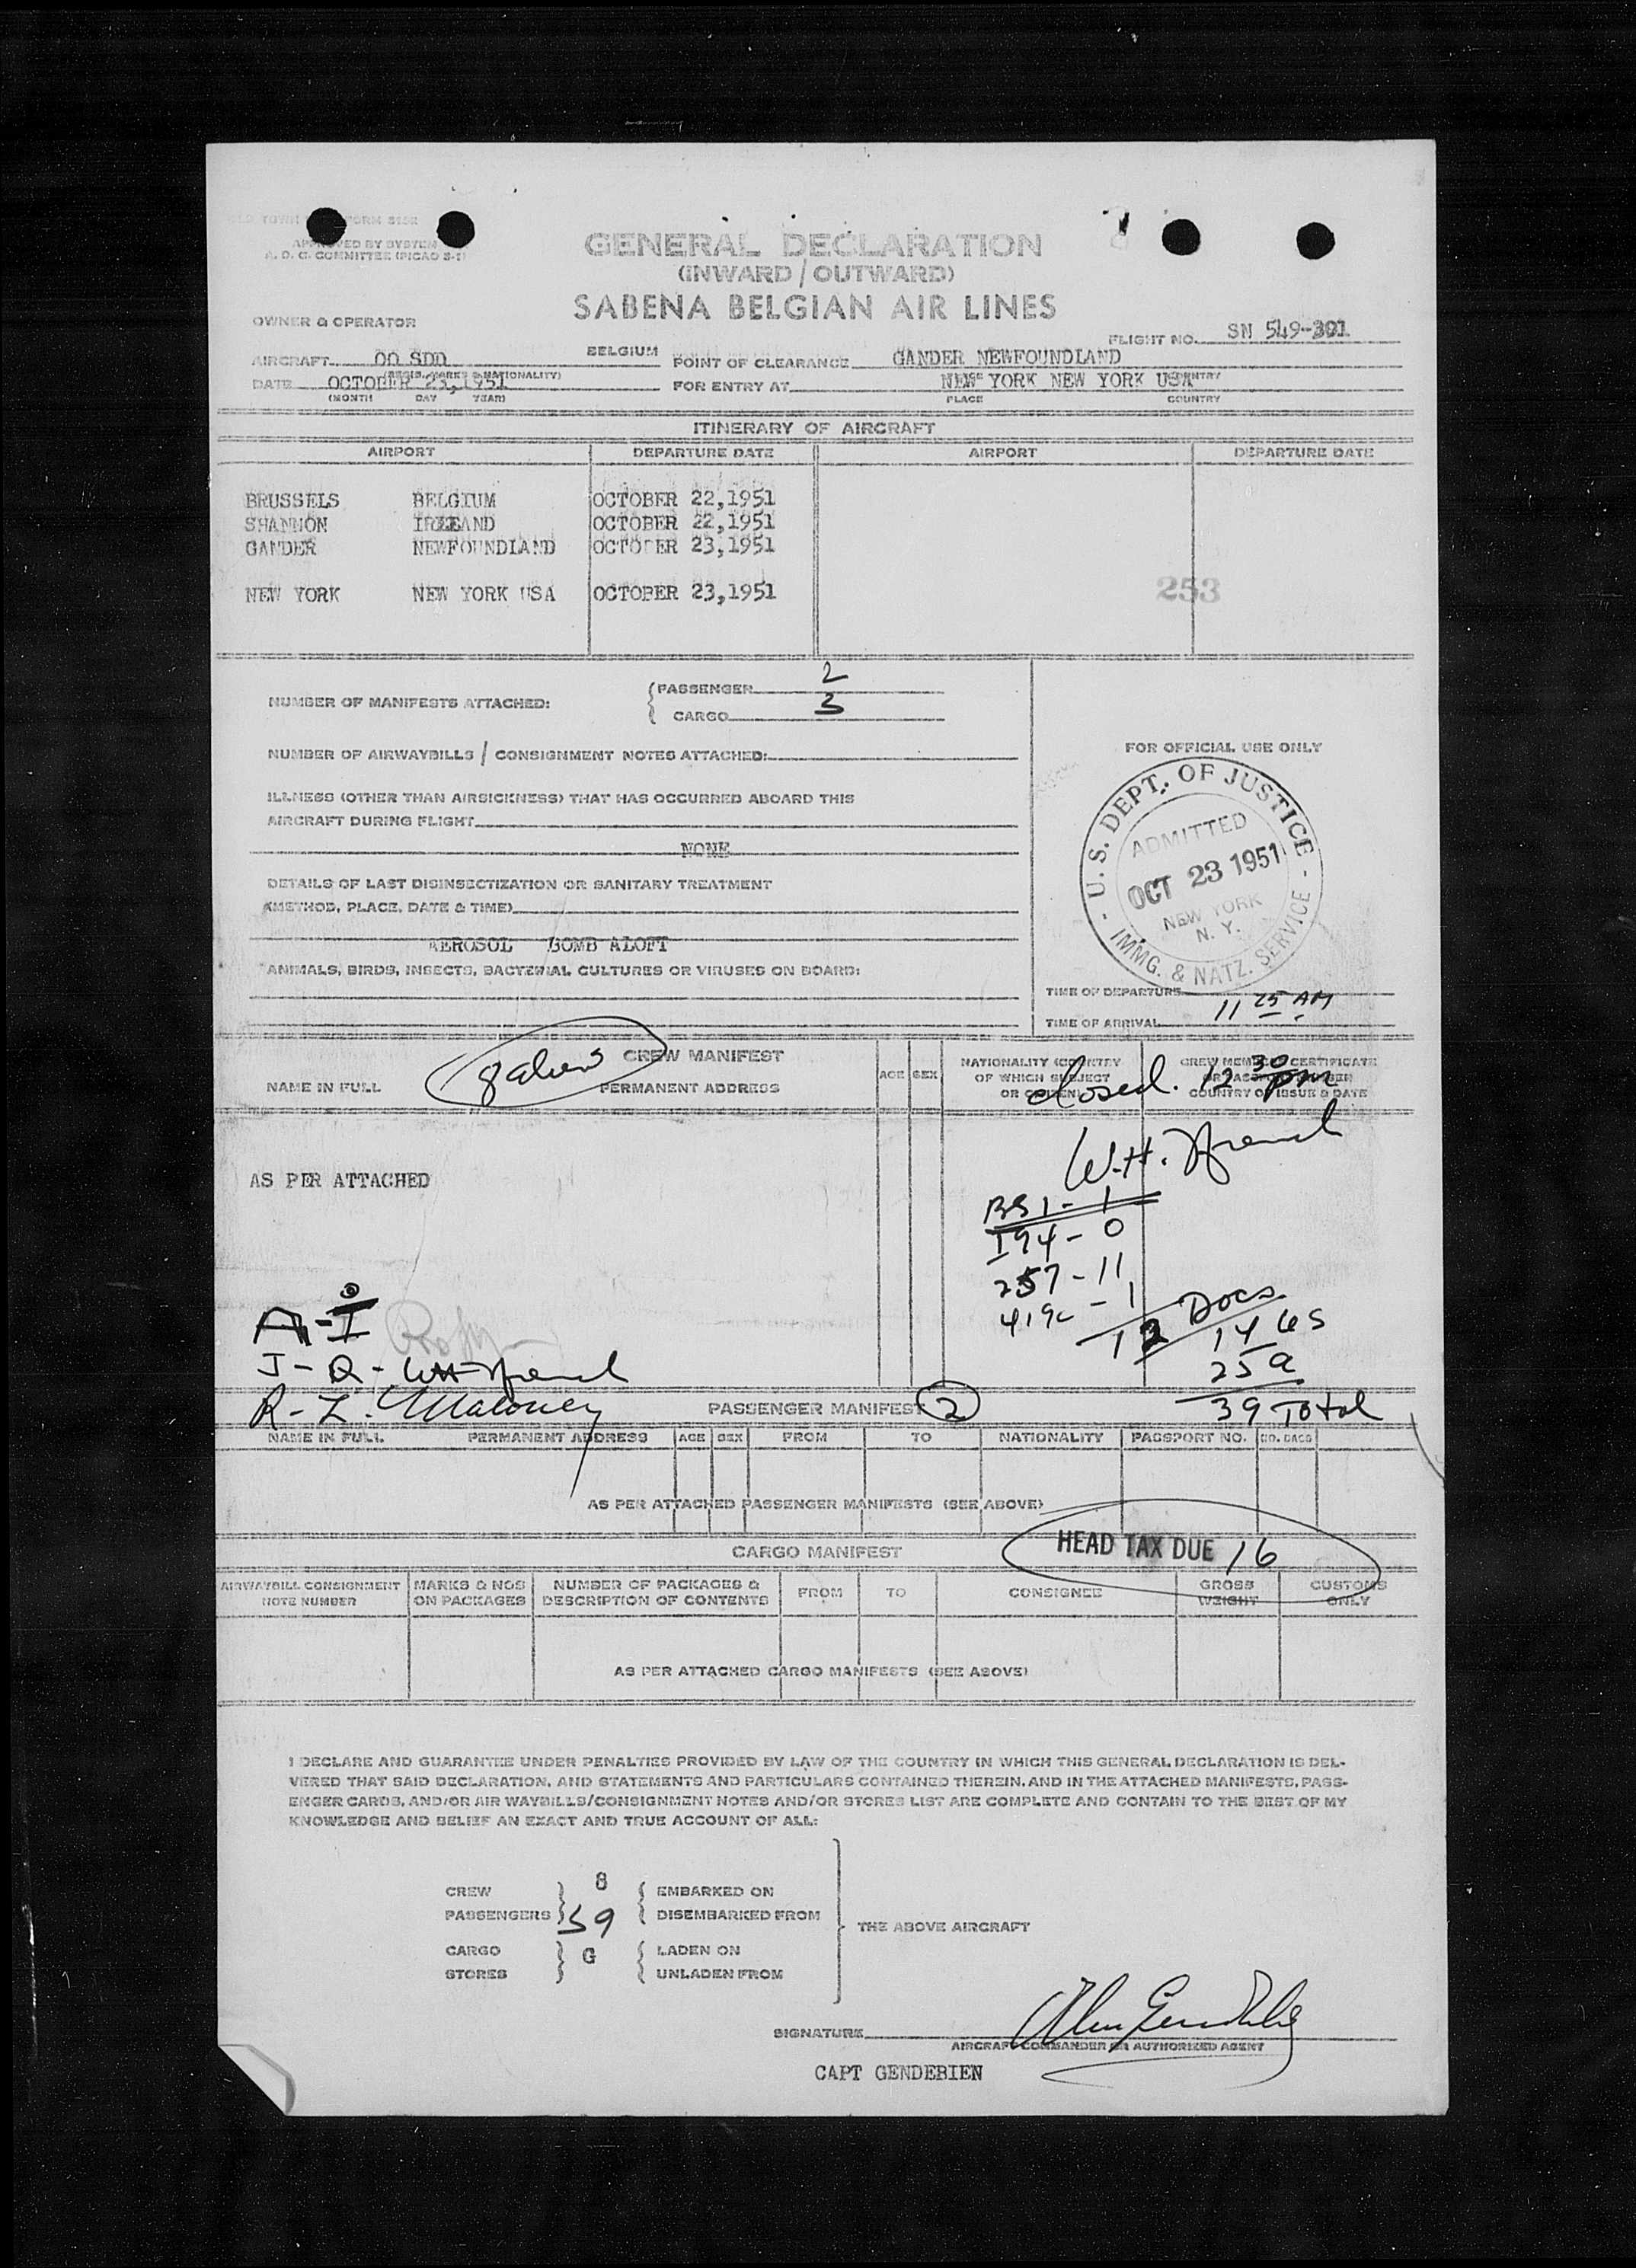 FORM
APPROVED BY SYSTEM
A. O. C. COMMITTEE (PICAO S-1)
GENERAL DECLARATION
(INWARD / OUTWARD)
SABENA BELGIAN AIR LINES
OWNER & OPERATOR
FLIGHT NO. SN 549-301
AIRCRAFT OO SDD BELGIUM
(REGIS. MARKS & NATIONALITY)
POINT OF CLEARANCE GANDER NEWFOUNDLAND
DATE OCTOBER 23,1951
(MONTH DAY YEAR)
FOR ENTRY AT NEW YORK NEW YORK USA
PLACE COUNTRY
ITINERARY OF AIRCRAFT
AIRPORT DEPARTURE DATE AIRPORT DEPARTURE DATE
BRUSSELS BELGIUM OCTOBER 22,1951
SHANNON OCTOBER 22,1951
GANDER NEWFOUNDLAND OCTOBER 23,1951
NEW YORK NEW YORK USA OCTOBER 23,1951
253
NUMBER OF MANIFESTS ATTACHED:
PASSENGER 2
CARGO 3
NUMBER OF AIRWAYBILLS / CONSIGNMENT NOTES ATTACHED:
ILLNESS (OTHER THAN AIRSICKNESS) THAT HAS OCCURRED ABOARD THIS
AIRCRAFT DURING FLIGHT
NONE
DETAILS OF LAST DISINSECTIZATION OR SANITARY TREATMENT
(METHOD, PLACE, DATE & TIME)
AEROSOL BOMB ALOFT
ANIMALS, BIRDS, INSECTS, BACTERIAL CULTURES OR VIRUSES ON BOARD:
FOR OFFICIAL USE ONLY
U.S. DEPT. OF JUSTICE
ADMITTED
OCT 23 1951
NEW YORK
N. Y.
IMMG. & NATZ. SERVICE
TIME OF DEPARTURE
TIME OF ARRIVAL 11 25 AM
CREW MANIFEST
NAME IN FULL PERMANENT ADDRESS AGE SEX
NATIONALITY (COUNTRY
OF WHICH SUBJECT
OR CITIZEN)
CREW MEMBER CERTIFICATE
COUNTRY OF ISSUE & DATE
closed. 12 30 pm
W.H. French
AS PER ATTACHED
BS1 - 1
I94 - 0
257 - 11
419c - 1
12 Docs
14 US
25 a
39 Total
J - Q - WH French
R - L. Maloney
PASSENGER MANIFEST 2
NAME IN FULL PERMANENT ADDRESS AGE SEX FROM TO NATIONALITY PASSPORT NO. NO. BAGS
AS PER ATTACHED PASSENGER MANIFESTS (SEE ABOVE)
HEAD TAX DUE 16
CARGO MANIFEST
AIRWAYBILL CONSIGNMENT
NOTE NUMBER
MARKS & NOS
ON PACKAGES
NUMBER OF PACKAGES &
DESCRIPTION OF CONTENTS
FROM TO CONSIGNEE
GROSS
WEIGHT
CUSTOMS
ONLY
AS PER ATTACHED CARGO MANIFESTS (SEE ABOVE)
I DECLARE AND GUARANTEE UNDER PENALTIES PROVIDED BY LAW OF THE COUNTRY IN WHICH THIS GENERAL DECLARATION IS DEL-
VERED THAT SAID DECLARATION, AND STATEMENTS AND PARTICULARS CONTAINED THEREIN, AND IN THE ATTACHED MANIFESTS, PASS-
ENGER CARDS, AND/OR AIR WAYBILLS/CONSIGNMENT NOTES AND/OR STORES LIST ARE COMPLETE AND CONTAIN TO THE BEST OF MY
KNOWLEDGE AND BELIEF AN EXACT AND TRUE ACCOUNT OF ALL:
CREW 8 EMBARKED ON
PASSENGERS 39 DISEMBARKED FROM
THE ABOVE AIRCRAFT
CARGO G LADEN ON
STORES UNLADEN FROM
SIGNATURE
AIRCRAFT COMMANDER OR AUTHORIZED AGENT
CAPT GENDEBIEN